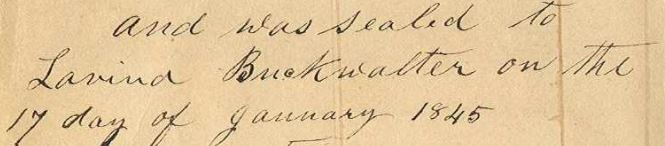 and was sealed to
Lavina Buckwalter on the
17 day of January 1845